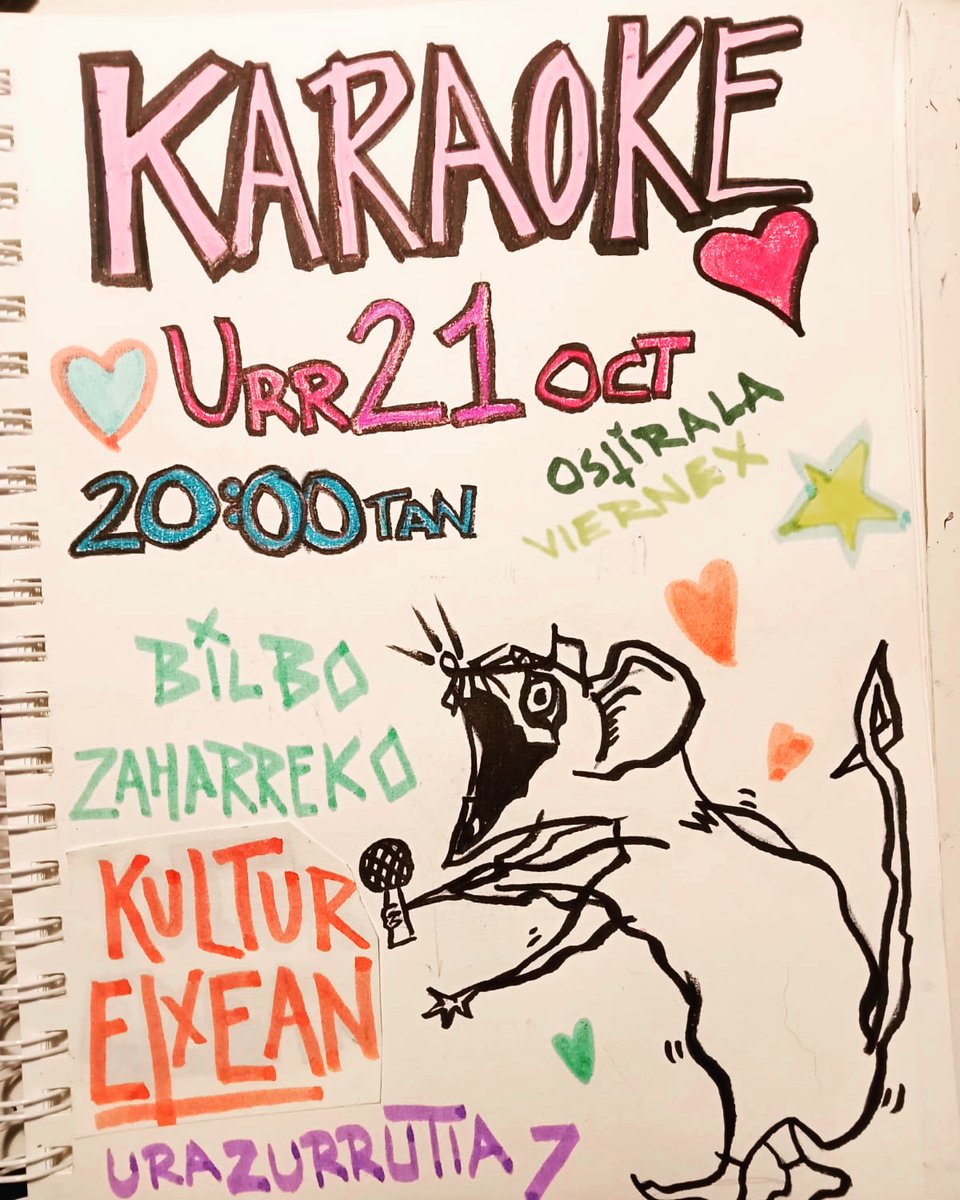 KARAOKE
URR 21 OCT
OSTIRALA
VIERNEX
20:00TAN
BiLBO
ZAHARREKO
KULTUR
ETXEAN
URAZURRUTIA 7